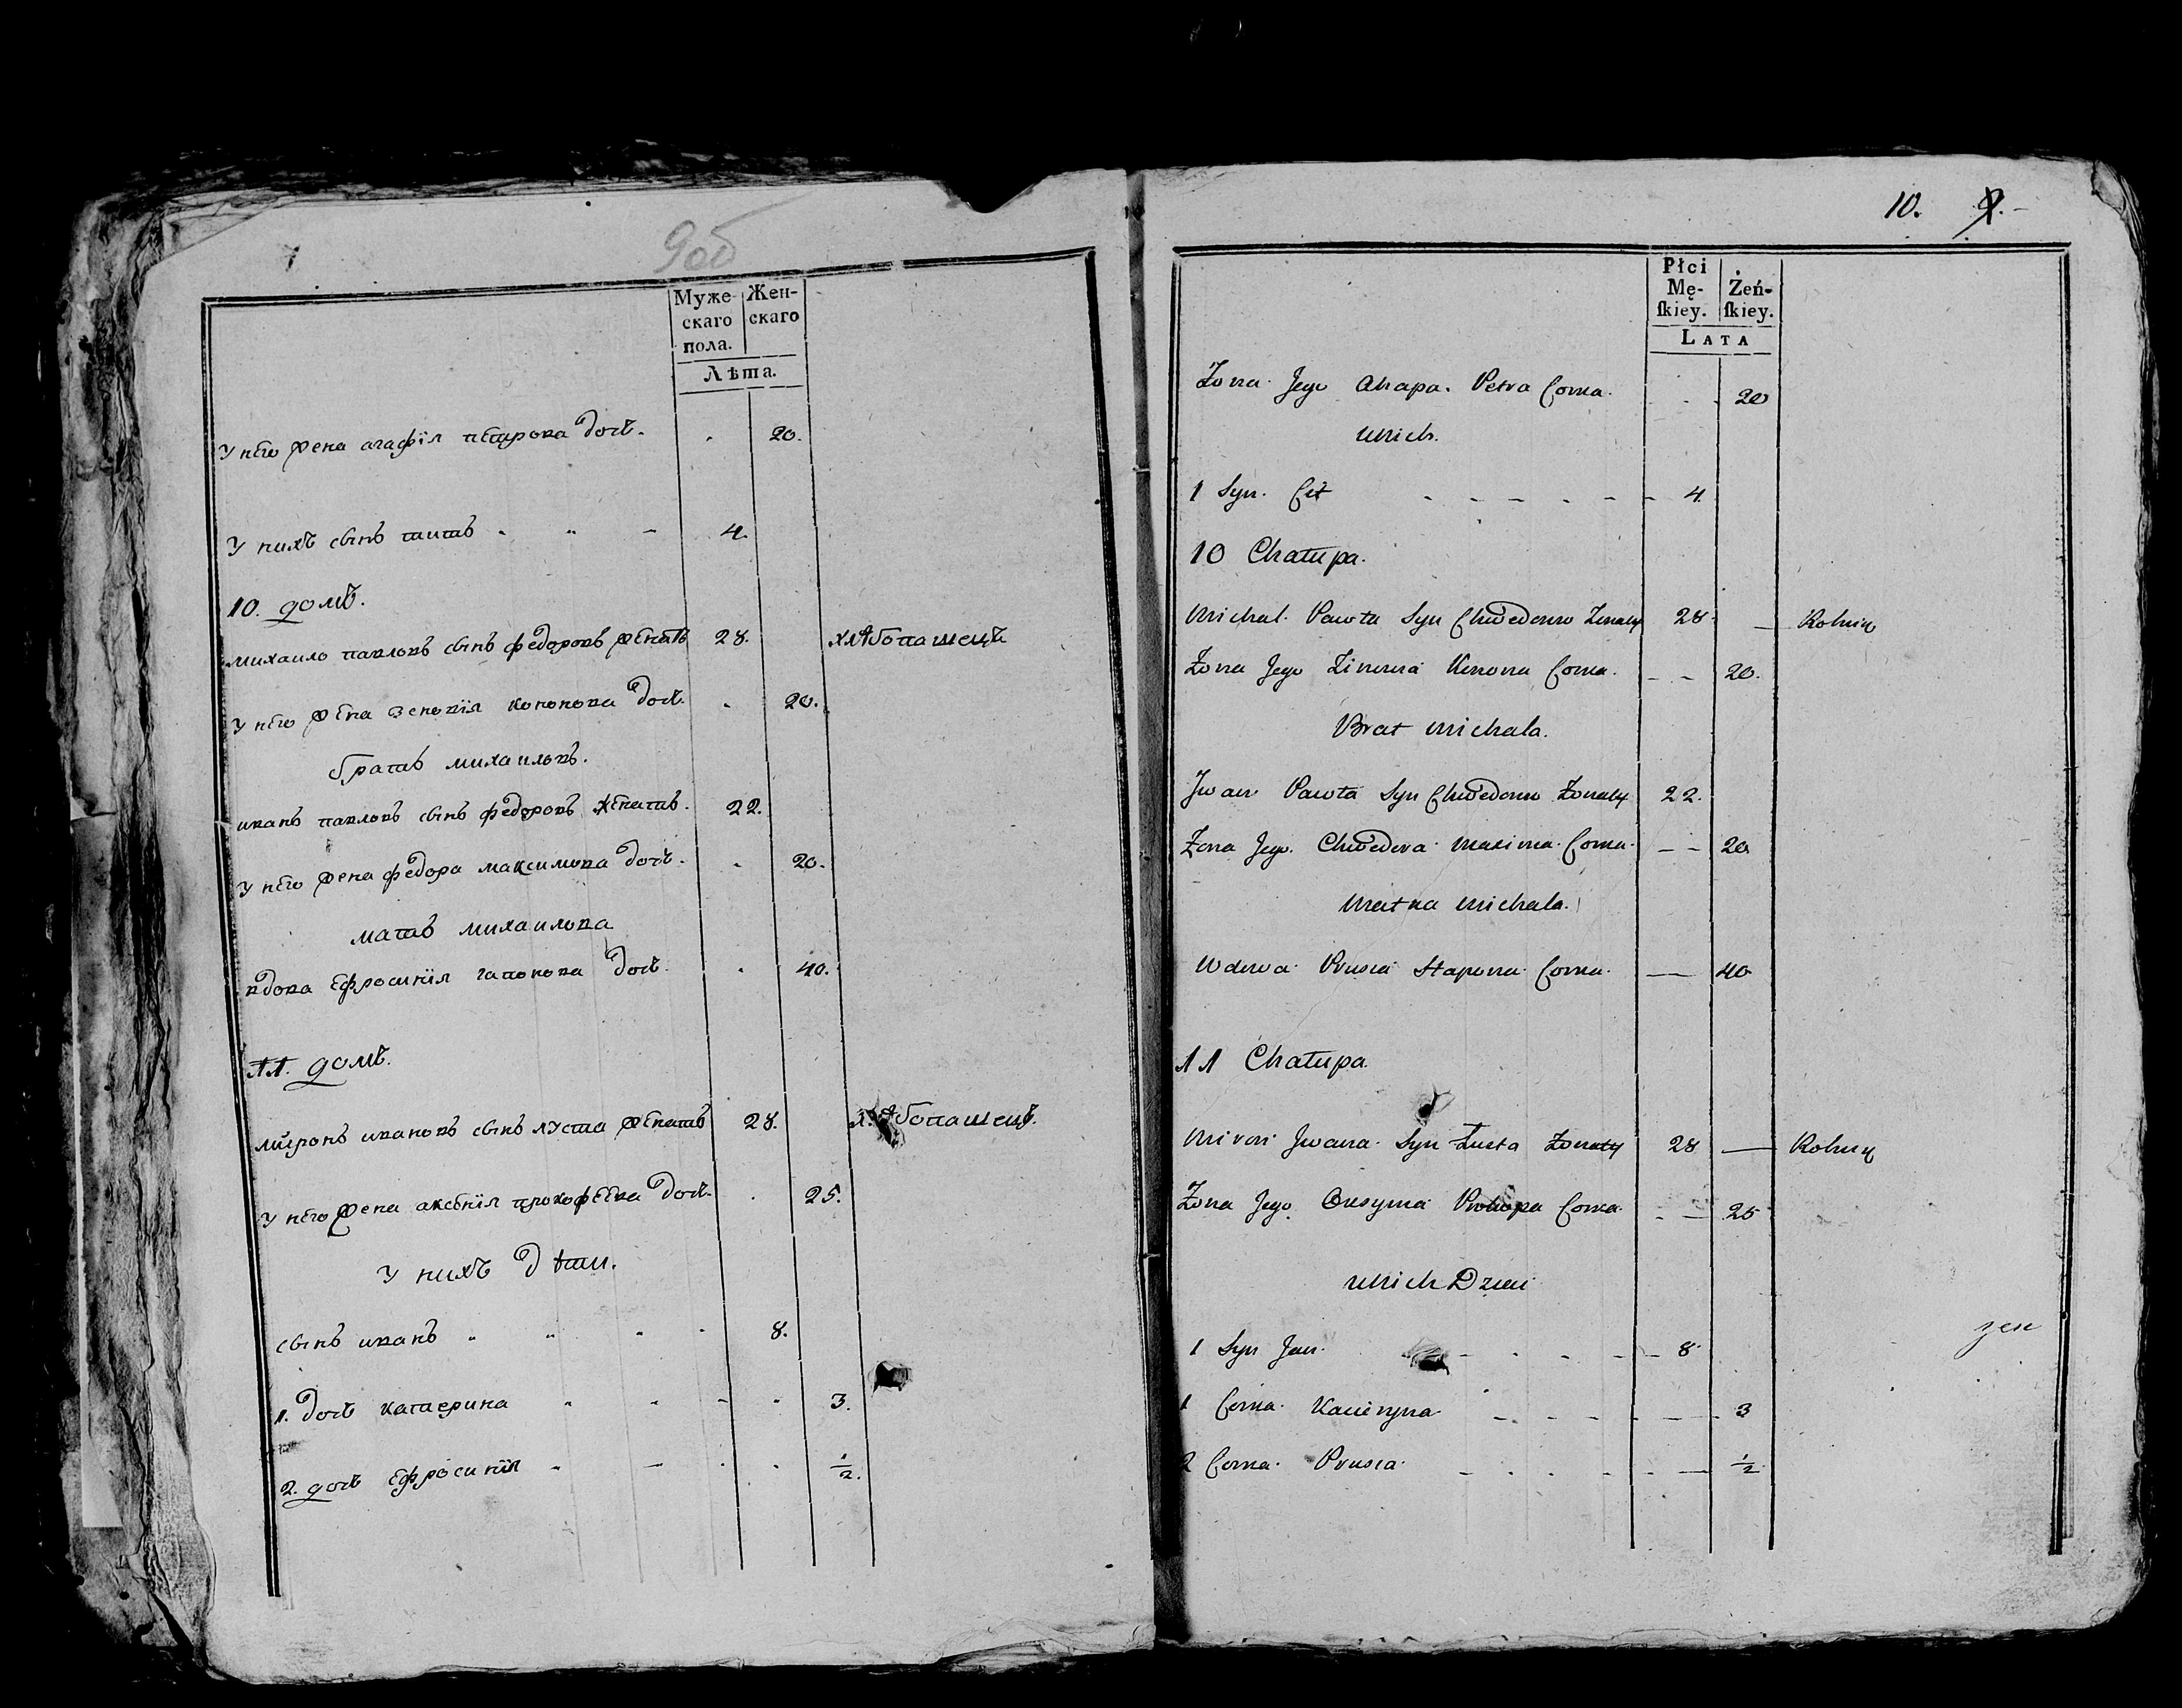 9об
Муже-
скаго
пола.
Жен-
скаго
Лѣта.
У него жена агафія петрова дочь. . 20.
У нихъ сынъ титъ 4.
10. домъ.
михаило павловъ сынъ федоровъ женатъ 28. хлѣбопашецъ
У него жена зеновія кононова дочь. . 20.
братъ михаиловъ.
иванъ павловъ сынъ федоровъ женатъ. 22.
У него жена федора максимова дочь. . 20.
мать михаилова
вдова Ефросинія гапонова дочь. . 40.
11. домъ.
миронъ ивановъ сынъ луста женатъ 28. хлѣбопашецъ.
У него жена аксенія прокофѣева дочь. . 25.
У нихъ дѣти.
сынъ иванъ 8.
1. дочь катерина 3.
2. дочь Ефросинія 1/2.
10. 9.
Płci
Mę-
skiey.
Żeń-
skiey.
LATA
Zona Jego Ahapa Petra Corka. 20
Unich.
1 Syn. Cit 4
10 Chałupa.
Michal. Pawła Syn Chwedorow Zonaty 28 Rolnik
Zona Jego Zinowia Konona Corka. 20.
Brat Michala.
Jwan Pawła Syn Chwedorow Zonaty 22.
Zona Jego. Chwedora Maxima Corka. 20
Matka Michala.
Wdowa Prusia Hapona Corka. 40
11 Chałupa.
Miron Jwana Syn Łusta Zonaty 28 Rolnik
Zona Jego Oxsynia Prokopa Corka. 25
Unich Dzieci
1 Syn Jan. 8
1 Corka. Kacieryna 3
2 Corka. Prusia. 1/2